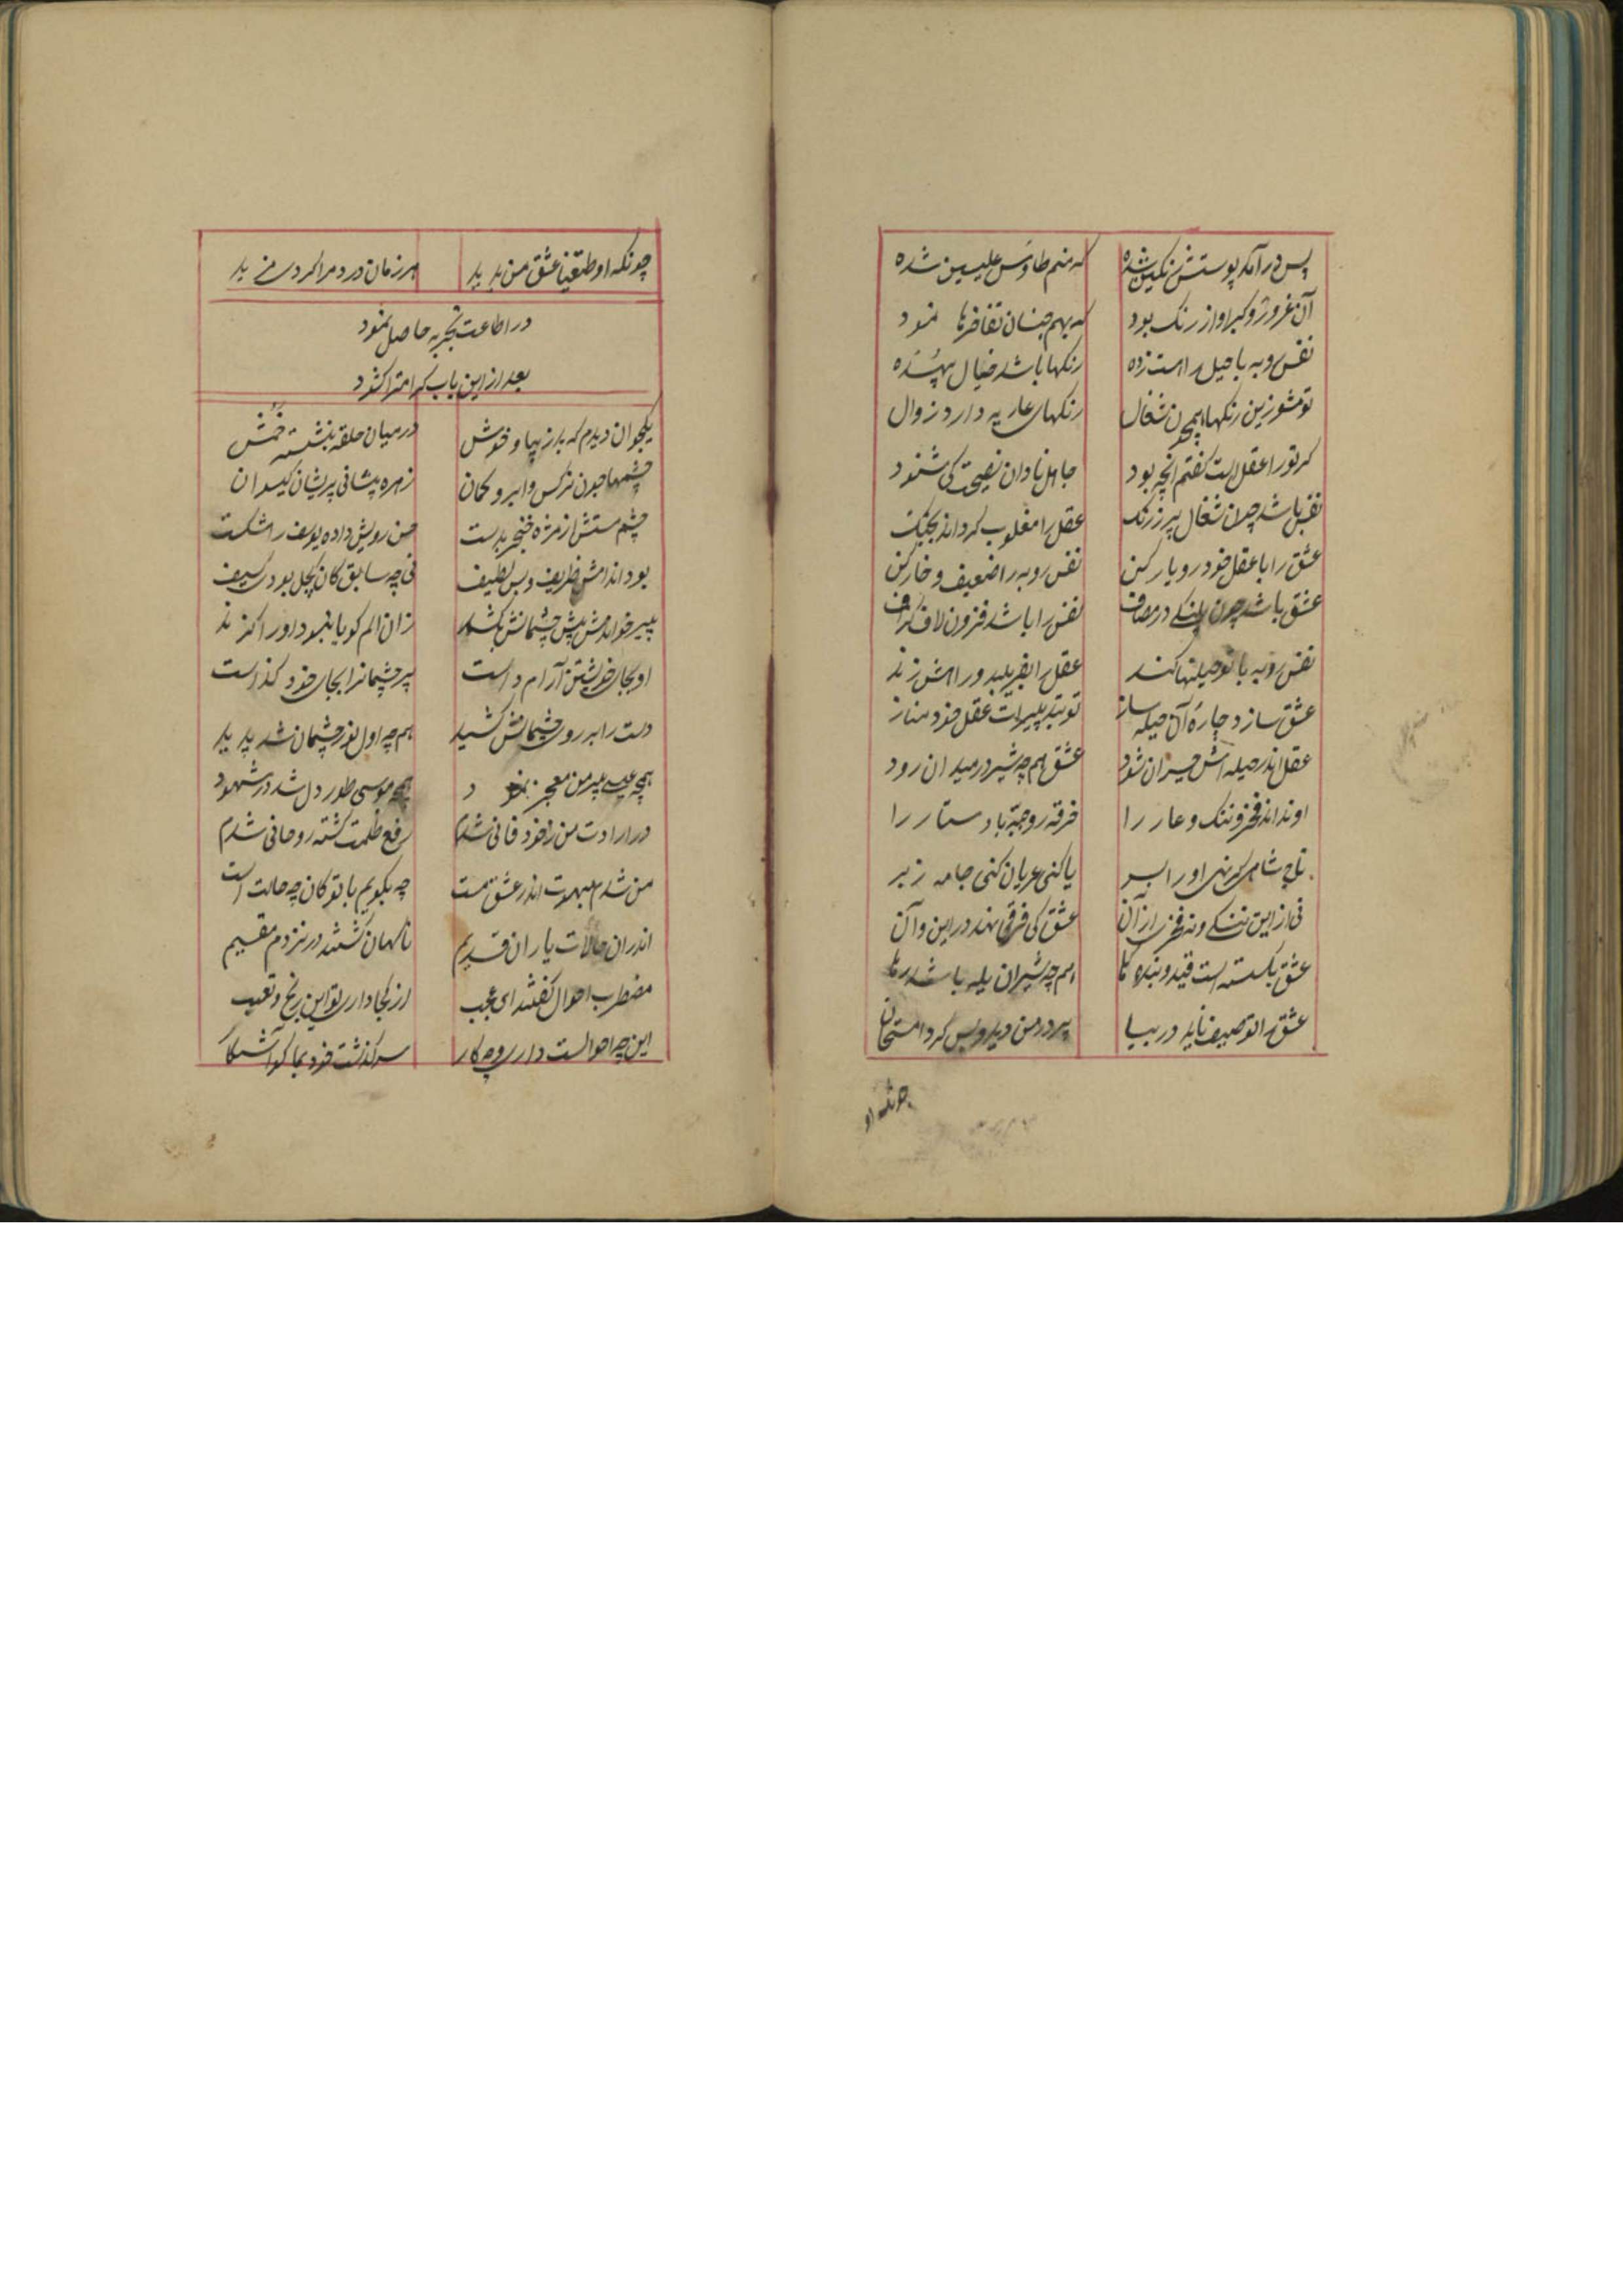 پس درآمد پوستش رنگین شده که منم طاوس علیین شده
آن غرور و کبر او از رنک بود که بهم جنسان تفاخرها نمود
نفس روبه با حیل راه است زده رنکها باشد خیال بیهده
تو مشو زین رنکها همچون شغال رنکهای عاریه دارد زوال
کر تو را عقل است کفتم انچه بود جاهل نادان نصیحت کی شنود
نفس باشد چون شغال پر ز رنک عقل را مغلوب کرداند بجنک
عشق را با عقل خود رو یار کن نفس روبه را ضعیف و خار کن
عشق باشد چون پلنکی در مصاف نفس را باشد فزون لاف کزاف
نفس روبه با تو حیلتها کند عقل را بفریبد و راهش زند
عشق سازد چاره آن حیله ساز تو بتدبیرات عقل خود مناز
عقل اندر حیله اش حیران شود عشق هم چه شیر در میدان رود
او نداند فخر و ننک و عار را خرقه و جبه با دستار را
تاج شاهی کر نهی او را بسر یا کنی عریان کنی جامه زبر
نی از این ننکی و نه فخری از آن عشق کی فرقی نهد در این و آن
عشق بکسته است قید و بندها هم چه شیران یله باشد رها
عشق را توصیف ناید در بیا پیر در من دید و بس کرد امتحان
چونکه او
چونکه او طغیان عشق من بدید هر زمان درد مرا کردی مزید
در اطاعت تجربه حاصل نمود
بعد از این باب کرامت را کشود
یکجوان دیدم که بد زیبا و خوش در میان حلقه بنشسته خمش
چشمها چون نرکس و ابرو کمان زهره پیشانی پریشان کیسوان
چشم مستش از مژه خنجر بدست حسن رویش داده یوسف را شکست
بود اندامش ظریف و بس لطیف نی چه سابق کان کچل بود کثیف
پیر خواندش پیش چشمانش بکند زان الم کویا نبود او را کزند
او بجای خویشتن آرام داشت پیر چشمانرا بجای خود کذاشت
دست را بر روی چشمانش کشید هم چه اول نور چشمان شد پدید
همچه عیسی پیر من معجز نمود همچه موسی طور دل شد در شهود
در ارادت من ز خود فانی شدم رفع ظلمت کشته روحانی شدم
من شدم مبهوت اندر عشق مست چه بکویم با تو کان چه حالت است
اندران حالات یاران قدیم ناکهان کشتند در نزدم مقیم
مضطرب احوال کفتند ای عجب از کجا داری تو این رنج و تعب
این چه احوالست داری و چه کار سرکذشت خود بما کو آشکا